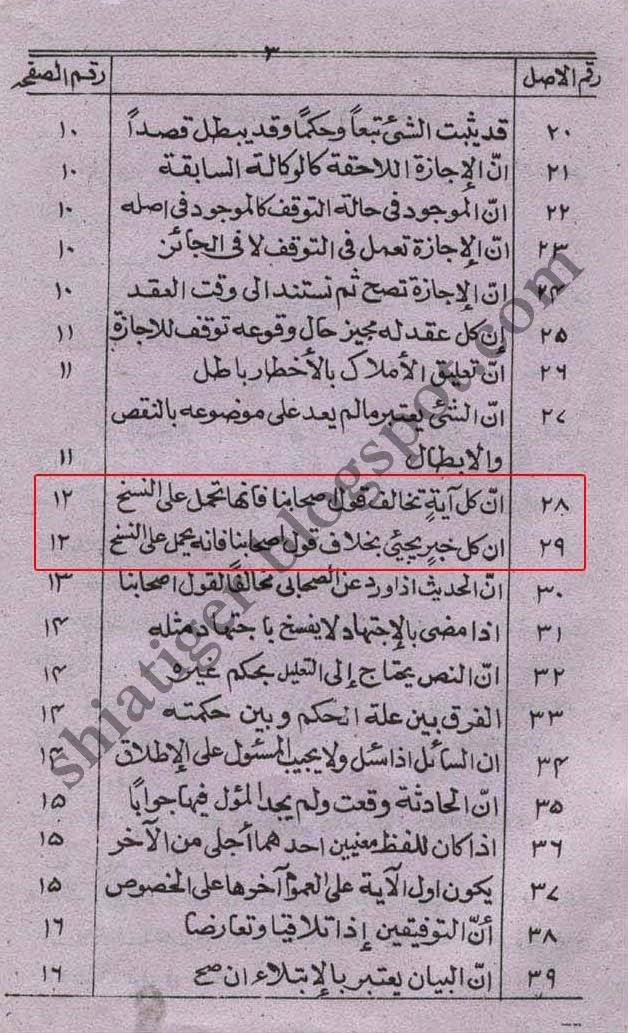 ٣
رقم الاصل رقم الصفحه
٢٠ قد يثبت الشئ تبعاً وحكماً وقد يبطل قصداً ١٠
٢١ انّ الإجازة اللاحقة كالوكالة السابقة ١٠
٢٢ انّ الموجود فى حالة التوقف كالموجود فى اصله ١٠
٢٣ انّ الإجازة تعمل فى التوقف لا فى الجائز ١٠
٢٤ انّ الإجازة تصح ثم تستند الى وقت العقد ١٠
٢٥ إن كل عقد له مجيز حال وقوعه توقف للاجازة ١١
٢٦ انّ تعليق الأملاك بالأخطار باطل ١١
٢٧ انّ الشئ يعتبر مالم يعد على موضوعه بالنقص
والإبطال ١١
٢٨ انّ كل آيةٍ تخالف قول اصحابنا فانها تحمل على النسخ ١٢
٢٩ ان كل خبرٍ يجيئ بخلاف قول اصحابنا فانه يحمل على النسخ ١٢
٣٠ انّ الحديث اذا ورد عن الصحابى مخالفاً لقول اصحابنا ١٣
٣١ اذا مضى بالإجتهاد لا يفسخ باجتهاد مثله ١٤
٣٢ انّ النص يحتاج إلى التعليل بحكم غيره ١٤
٣٣ الفرق بين علة الحكم وبين حكمته ١٤
٣٤ ان السائل اذا سئل ولا يجيب المسئول على الإطلاق ١٤
٣٥ انّ الحادثة وقعت ولم يجد المؤل فيها جواباً ١٥
٣٦ اذا كان للفظ معنيين احدهما أجلى من الآخر ١٥
٣٧ يكون اول الآية على العموم آخرها على الخصوص ١٥
٣٨ أنّ التوفيقين إذا تلاقيا وتعارضا ١٦
٣٩ انّ البيان يعتبر بالإبتلاء ان صح ١٦
shiatiger.blogspot.com